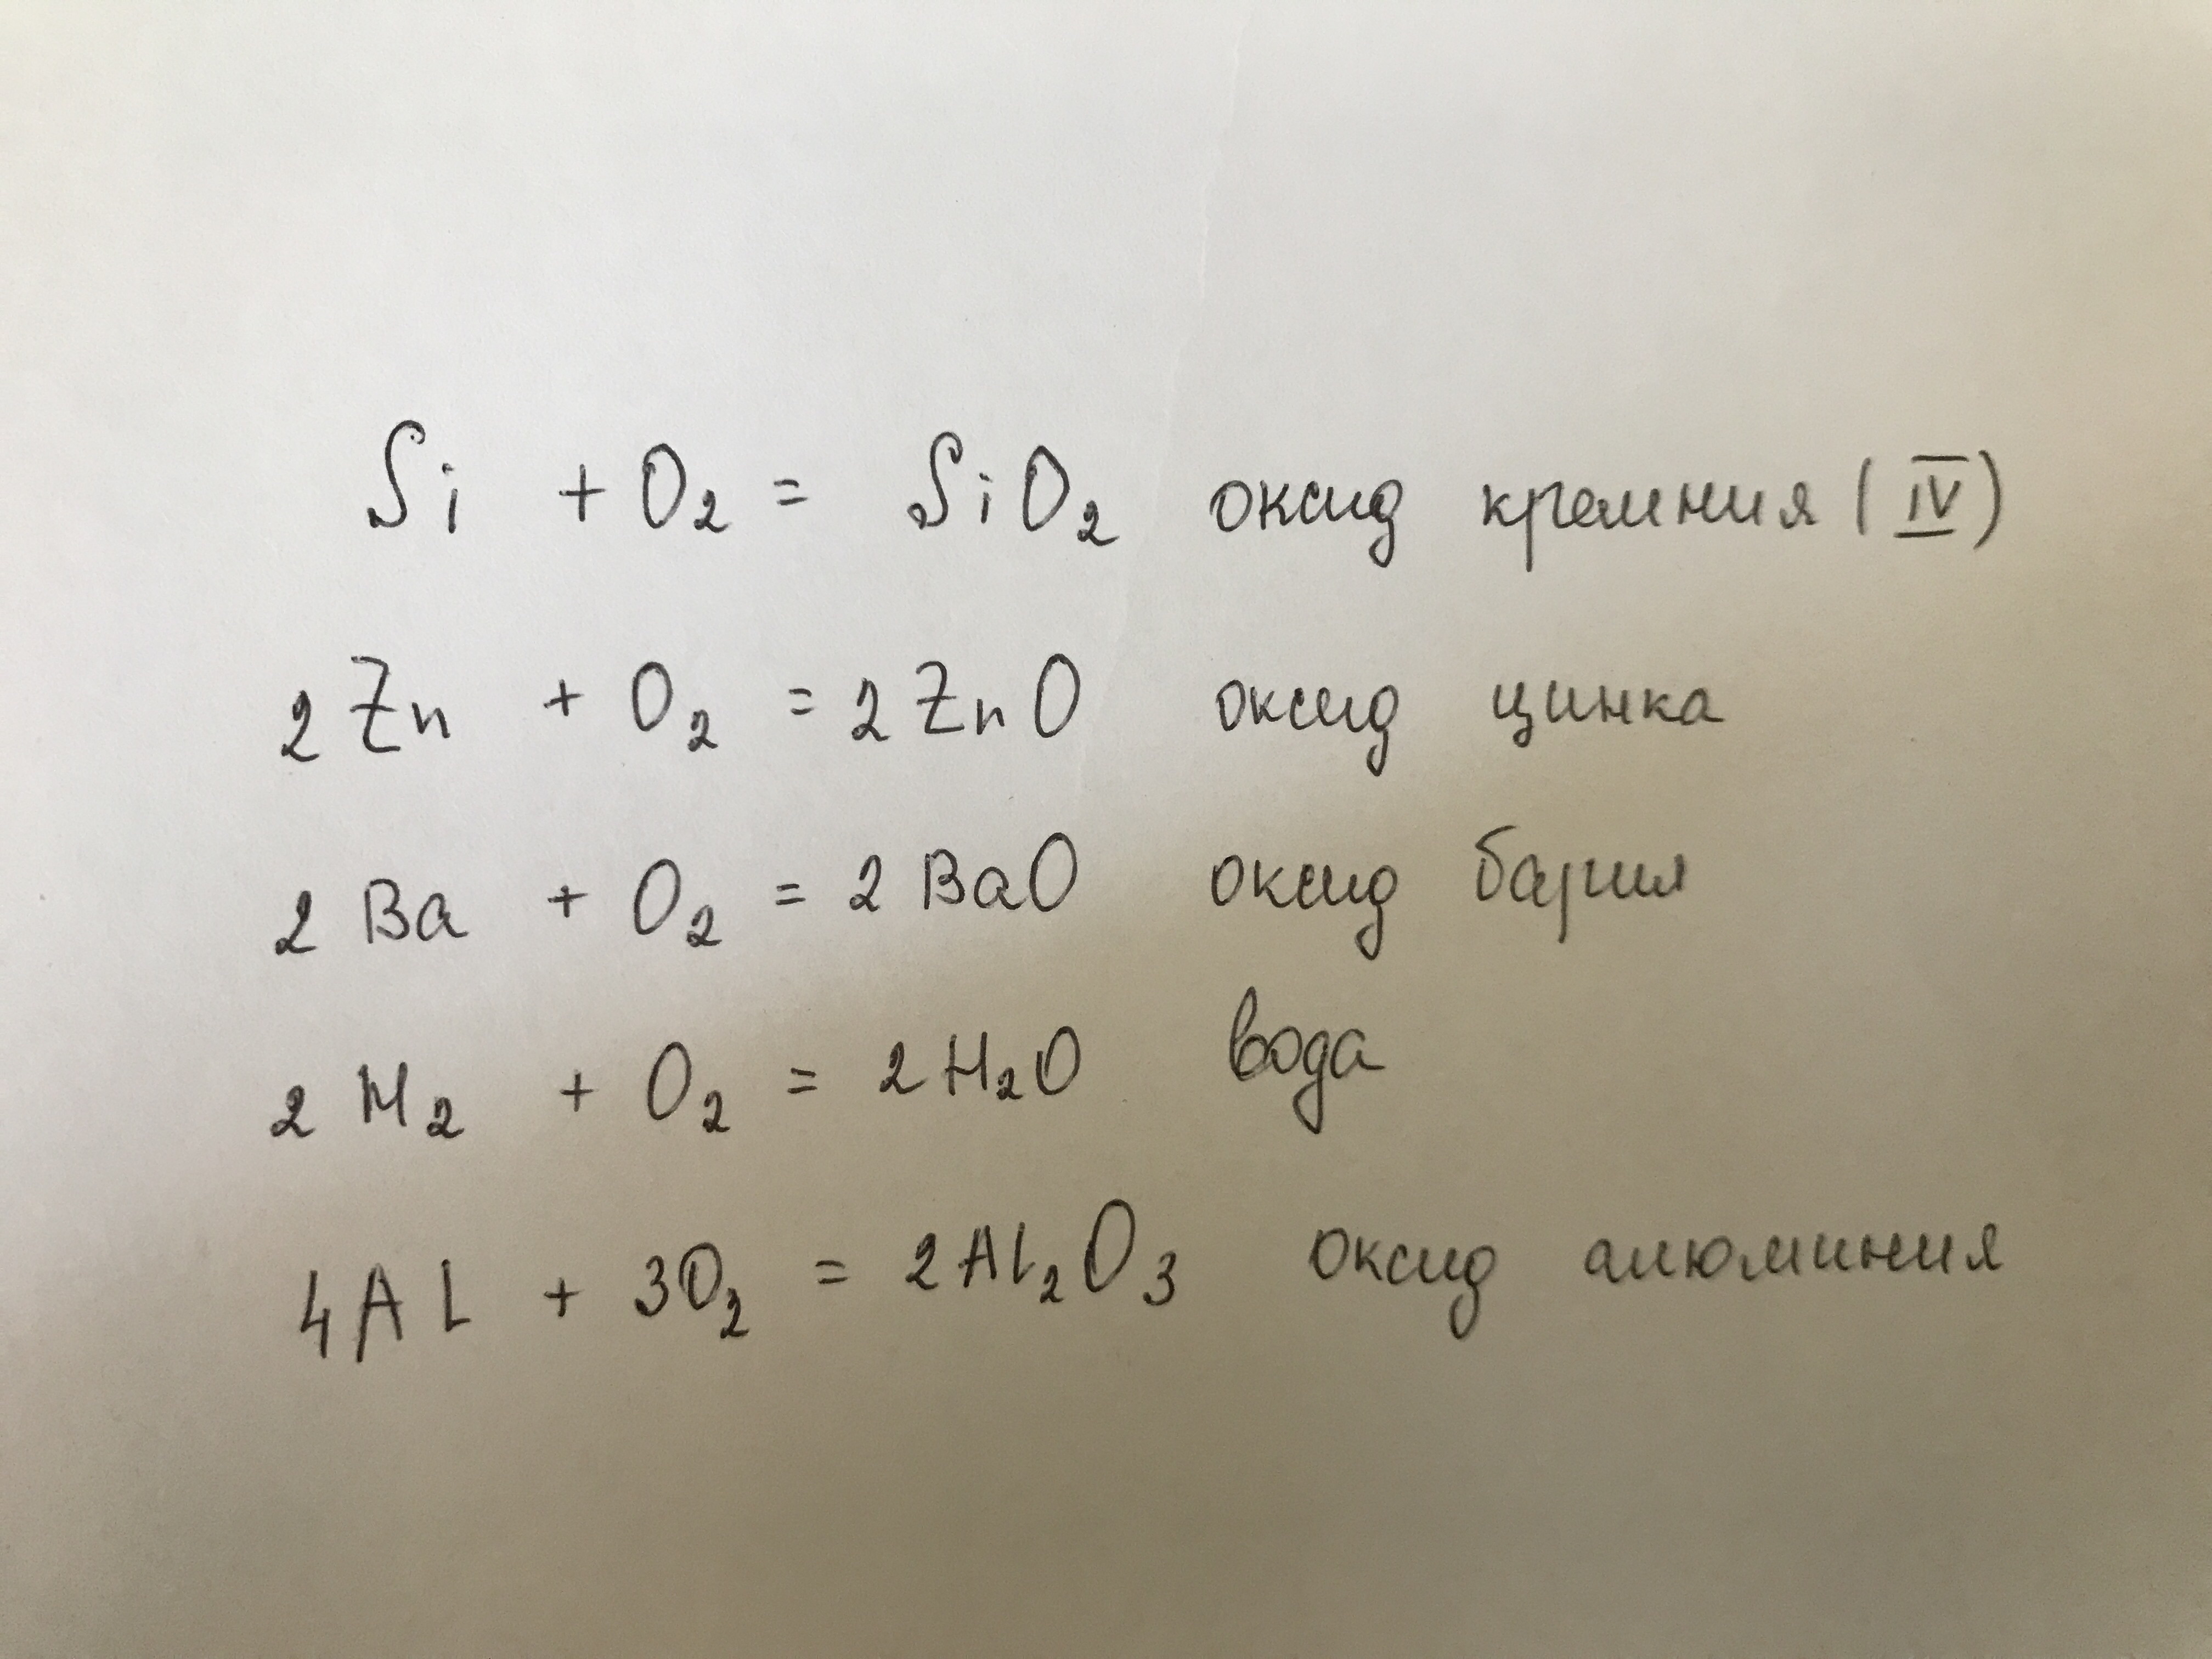 Si + O₂ = SiO₂ оксид кремния (IV)
2 Zn + O₂ = 2 ZnO оксид цинка
2 Ba + O₂ = 2 BaO оксид бария
2 H₂ + O₂ = 2 H₂O вода
4Al + 3O₂ = 2Al₂O₃ оксид алюминия